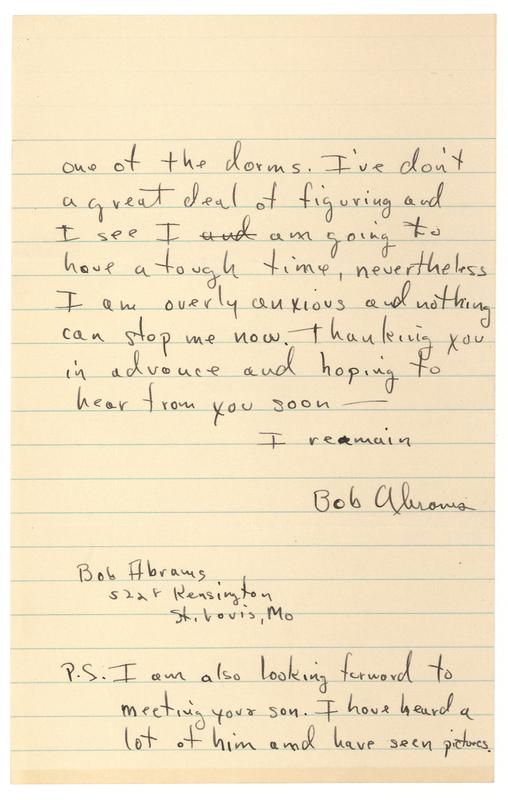 one of the dorms. I've don't
a great deal of figuring and
I see I and am going to
have a tough time, nevertheless
I am overly anxious and nothing
can stop me now. Thanking you
in advance and hoping to
hear from you soon —
I reamain
Bob Abrams
Bob Abrams
Kensington
St. Louis, Mo
P.S. I am also looking forward to
meeting your son. I have heard a
lot of him and have seen pictures.